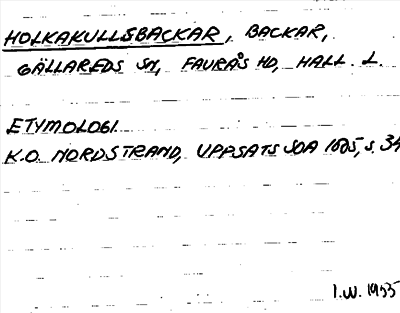 HOLKAKULLSBACKAR, BACKAR,
GÄLLAREDS SN, FAURÅS HD, HALL. L.
ETYMOLOGI
K.O. NORDSTRAND, UPPSATS SOA 1605, S. 34
I.W. 1955